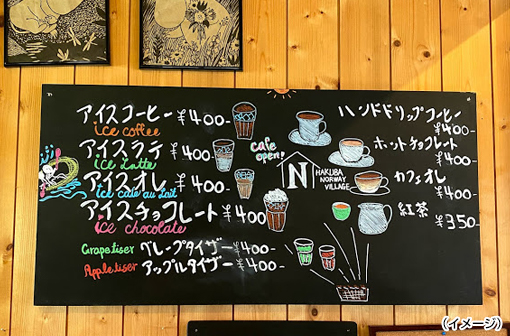 アイスコーヒー ¥400-
ice coffee
アイスラテ ¥400-
ice Latte
アイスオレ ¥400-
Ice café au lait
アイスチョコレート ¥400
ice chocolate
Grapetiser グレープタイザー ¥400-
Appletiser アップルタイザー ¥400-
cafe
open!
N
HAKUBA
NORWAY
VILLAGE
ハンドドリップコーヒー
¥400-
ホットチョコレート
¥400-
カフェオレ
¥400-
紅茶 ¥350-
(イメージ)